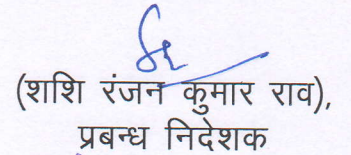 (शशि रंजन कुमार राव),
प्रबन्ध निदेशक